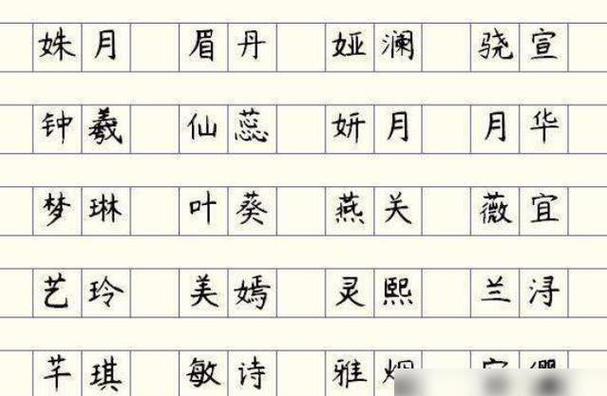 姝月 眉丹 娅澜 骁宣
钟羲 仙蕊 妍月 月华
梦琳 叶葵 燕关 薇宜
艺玲 美嫣 灵熙 兰浔
芊琪 敏诗 雅